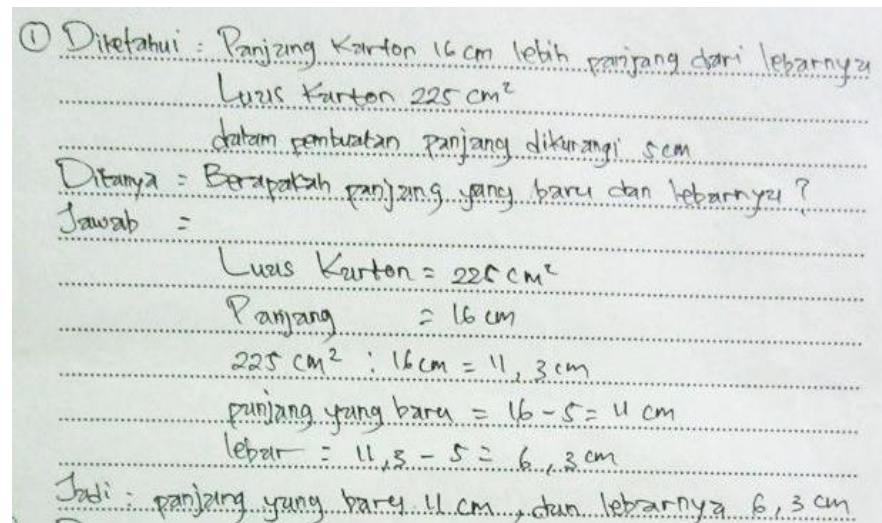 ① Diketahui : Panjang Karton 16 cm lebih panjang dari lebarnya
Luas Karton 225 cm²
dalam pembuatan panjang dikurangi 5 cm
Ditanya = Berapakah panjang yang baru dan lebarnya ?
Jawab =
Luas Karton = 225 cm²
Panjang = 16 cm
225 cm² : 16 cm = 11,3 cm
panjang yang baru = 16 - 5 = 11 cm
lebar = 11,3 - 5 = 6,3 cm
Jadi : panjang yang baru 11 cm, dan lebarnya 6,3 cm